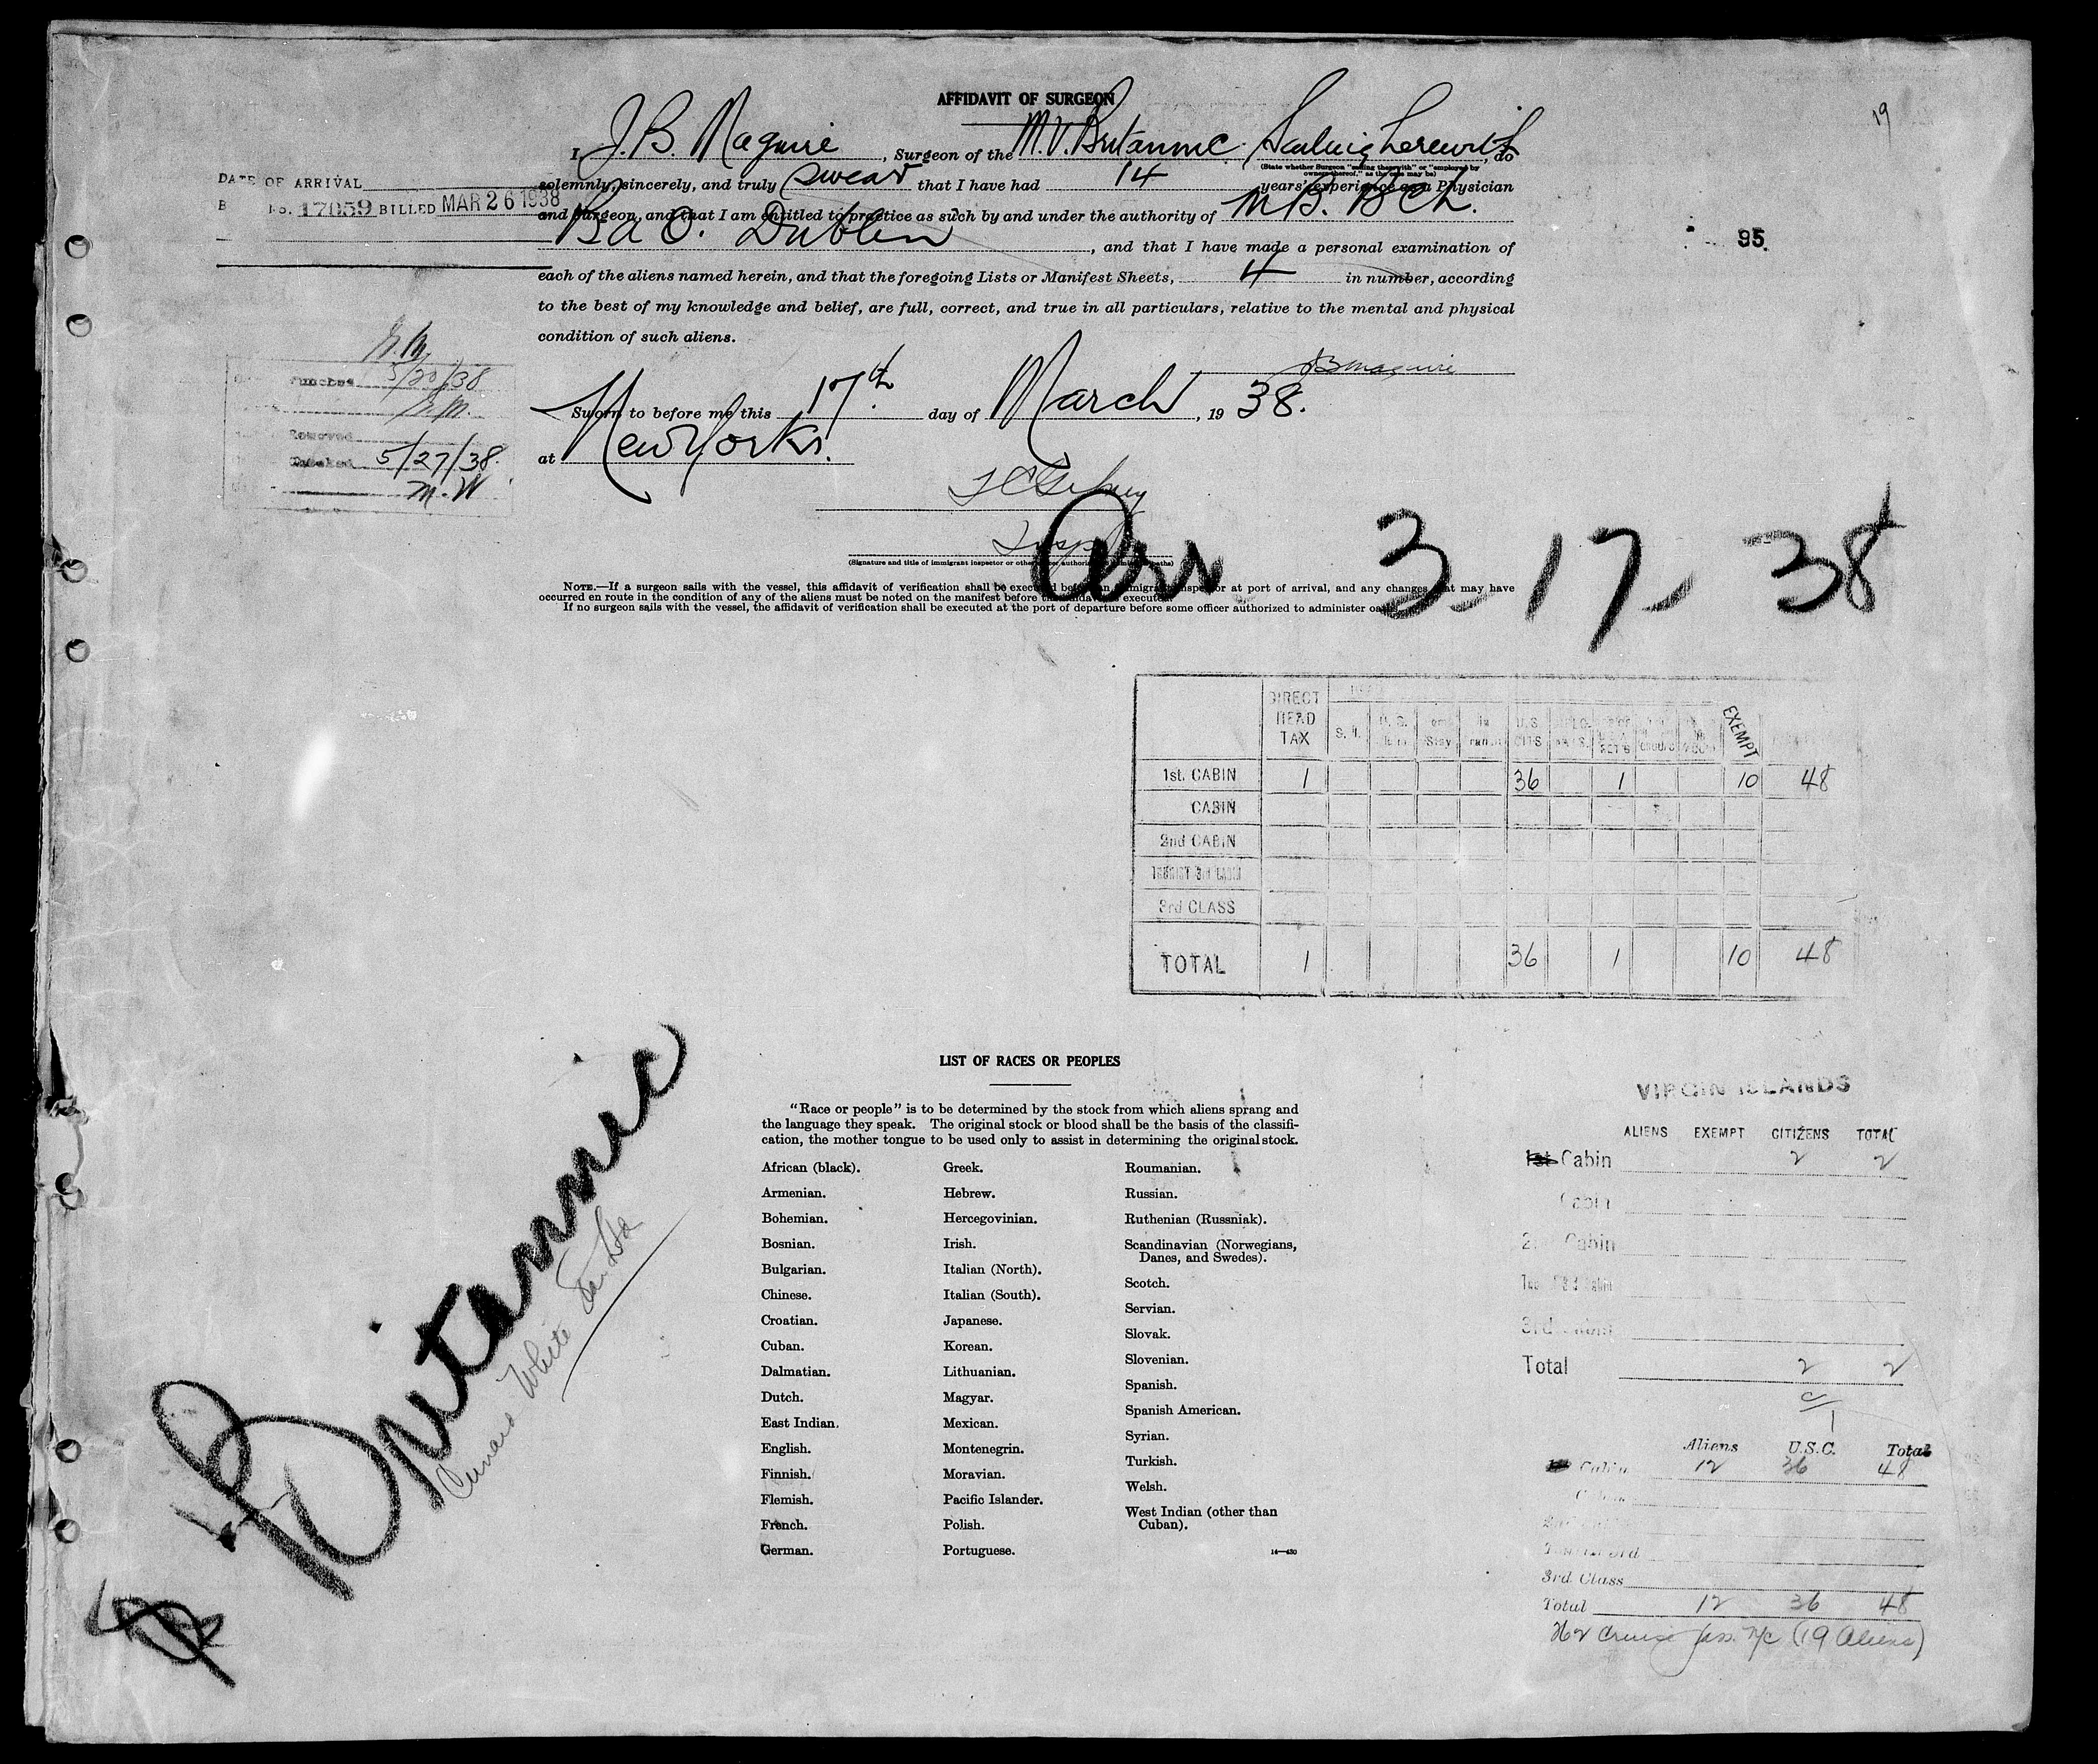 AFFIDAVIT OF SURGEON
19
I, J. B. Maguire, Surgeon of the M.V. Britannic Sailing therewith, do
(State whether Surgeon "sailing therewith" or "employed by owners thereof," as the case may be)
solemnly, sincerely, and truly swear that I have had 14 years' experience as a Physician
and Surgeon, and that I am entitled to practice as such by and under the authority of M.B. B Ch.
B a O. Dublin, and that I have made a personal examination of
each of the aliens named herein, and that the foregoing Lists or Manifest Sheets, 4 in number, according
to the best of my knowledge and belief, are full, correct, and true in all particulars, relative to the mental and physical
condition of such aliens.
DATE OF ARRIVAL
17059 BILLED MAR 26 1938
95.
JB Maguire
Punched 5/20/38
Removed
5/27/38.
M.W
Sworn to before me this 17th day of March, 1938.
at New York.
(Signature and title of immigrant inspector or other officer authorized to administer oaths)
Arr 3-17-38
NOTE.—If a surgeon sails with the vessel, this affidavit of verification shall be executed before an immigrant inspector at port of arrival, and any changes that may have
occurred en route in the condition of any of the aliens must be noted on the manifest before the affidavit is executed.
If no surgeon sails with the vessel, the affidavit of verification shall be executed at the port of departure before some officer authorized to administer oaths.
DIRECT HEAD TAX S. I. U. S. Stay U.S. CITS EXEMPT
1st. CABIN 1 36 1 10 48
CABIN
2nd CABIN
TOURIST 3rd CABIN
3rd CLASS
TOTAL 1 36 1 10 48
Britannic
Cunard White Star Ltd
LIST OF RACES OR PEOPLES
"Race or people" is to be determined by the stock from which aliens sprang and
the language they speak. The original stock or blood shall be the basis of the classifi-
cation, the mother tongue to be used only to assist in determining the original stock.
African (black).
Armenian.
Bohemian.
Bosnian.
Bulgarian.
Chinese.
Croatian.
Cuban.
Dalmatian.
Dutch.
East Indian.
English.
Finnish.
Flemish.
French.
German.
Greek.
Hebrew.
Hercegovinian.
Irish.
Italian (North).
Italian (South).
Japanese.
Korean.
Lithuanian.
Magyar.
Mexican.
Montenegrin.
Moravian.
Pacific Islander.
Polish.
Portuguese.
Roumanian.
Russian.
Ruthenian (Russniak).
Scandinavian (Norwegians,
Danes, and Swedes).
Scotch.
Servian.
Slovak.
Slovenian.
Spanish.
Spanish American.
Syrian.
Turkish.
Welsh.
West Indian (other than
Cuban).
14—430
VIRGIN ISLANDS
ALIENS EXEMPT CITIZENS TOTAL
1st Cabin 2 2
Cabin
2nd Cabin
3rd Cabin
Total 2 2
Aliens U.S.C. Total
Cabin 12 36 48
3rd. Class
Total 12 36 48
Cruise pass. (19 Aliens)